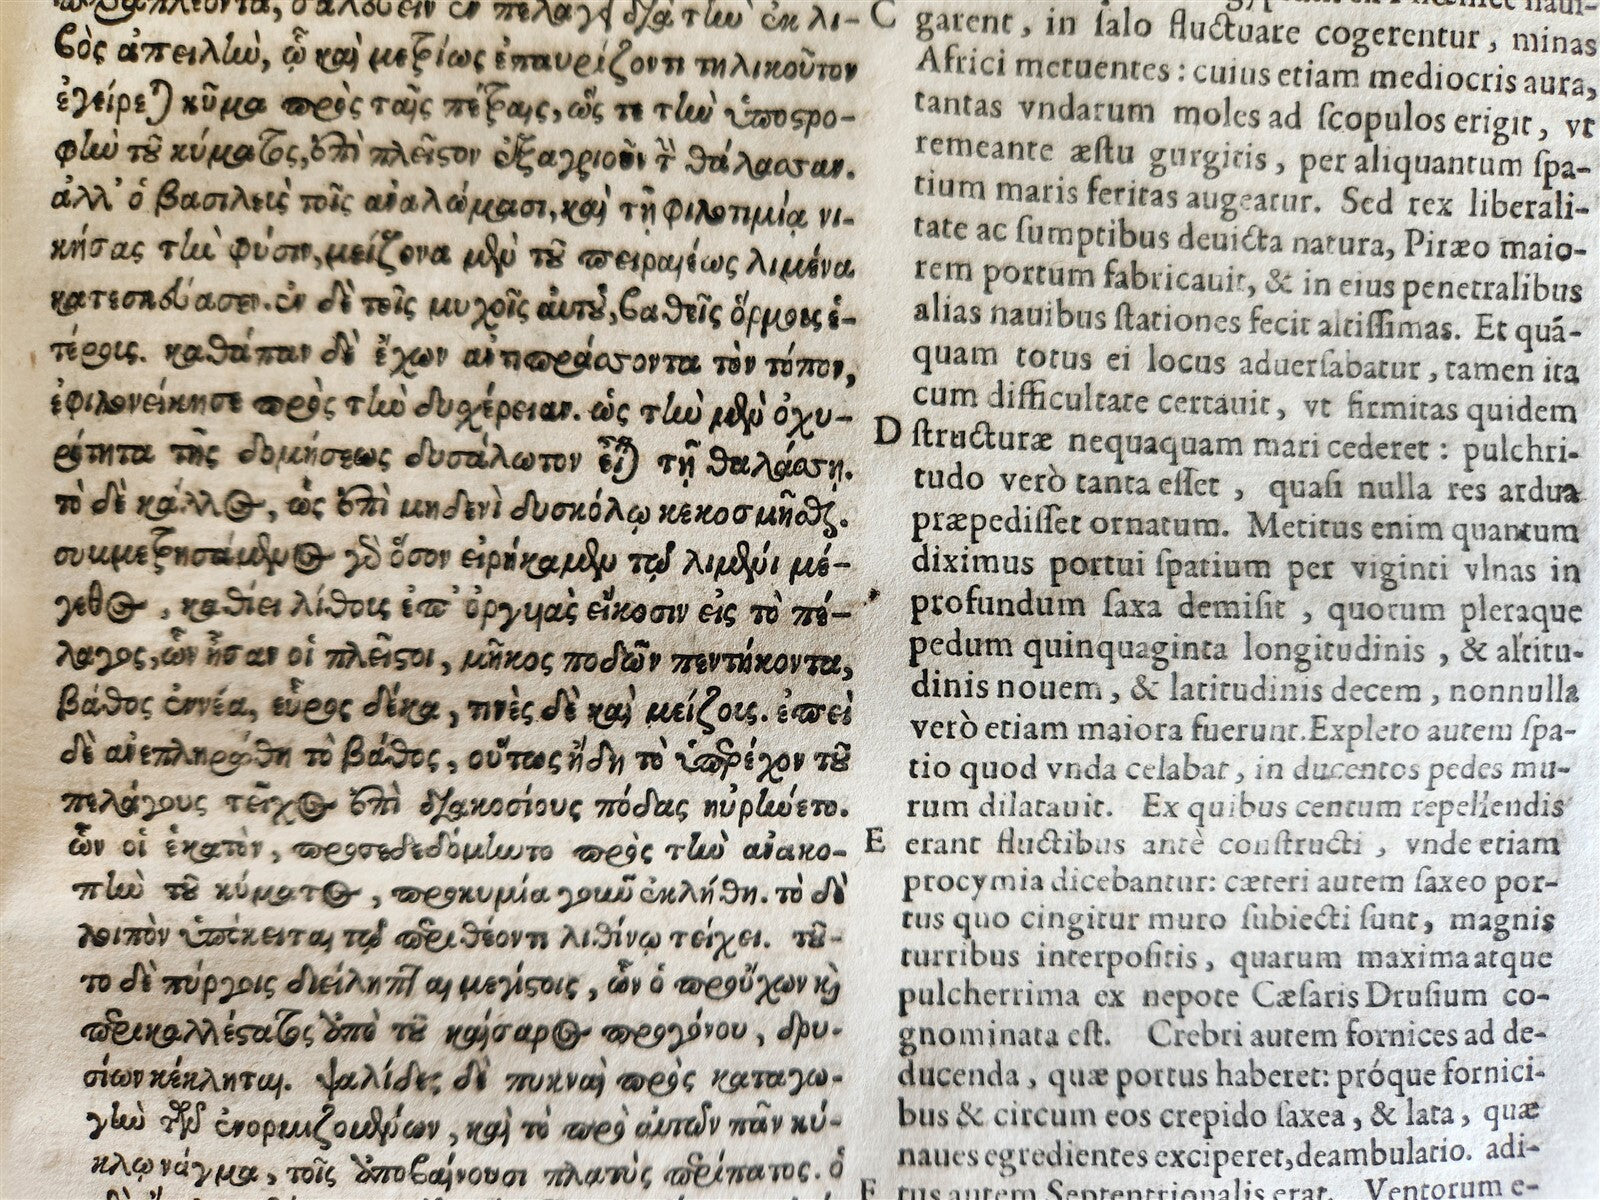 σαλεύειν ἐν πελάγει διὰ τὴν ἐκ λι-
βὸς ἀπειλὴν, ᾧ καὶ μετρίως ἐπαυρίζοντι τηλικοῦτον
ἐγείρεται κῦμα πρὸς ταῖς πέτραις, ὥς τε τὴν ὑποστρο-
φὴν τοῦ κύματος, ἐπὶ πλεῖστον ἐξαγριοῦν τὴν θάλασσαν.
ἀλλ' ὁ βασιλεὺς τοῖς ἀναλώμασι, καὶ τῇ φιλοτιμίᾳ νι-
κήσας τὴν φύσιν, μείζονα μὲν τοῦ πειραιέως λιμένα
κατεσκεύασεν. ἐν δὲ τοῖς μυχοῖς αὐτοῦ, βαθεῖς ὅρμους ἑ-
τέρους. καθάπαν δὲ ἔχων ἀντιπράσσοντα τὸν τόπον,
ἐφιλονείκησε πρὸς τὴν δυσχέρειαν. ὡς τὴν μὲν ὀχυ-
ρότητα τῆς δομήσεως δυσάλωτον εἶναι τῇ θαλάσσῃ.
τὸ δὲ κάλλος, ὡς ἐπὶ μηδενὶ δυσκόλῳ κεκοσμῆσθαι.
συμμετρησάμενος γὰρ ὅσον εἰρήκαμεν τῷ λιμένι μέ-
γεθος, καθίει λίθους ἐπ' ὀργυιὰς εἴκοσιν εἰς τὸ πέ-
λαγος, ὧν ἦσαν οἱ πλεῖστοι, μῆκος ποδῶν πεντήκοντα,
βάθος ἐννέα, εὖρος δέκα, τινὲς δὲ καὶ μείζους. ἐπεὶ
δὲ ἀνεπληρώθη τὸ βάθος, οὕτως ἤδη τὸ ὑπερέχον τοῦ
πελάγους τεῖχος ἐπὶ διακοσίους πόδας ηὐρύνετο.
ὧν οἱ ἑκατὸν, προσεδεδόμηντο πρὸς τὴν ἀνακο-
πὴν τοῦ κύματος, προκυμία γοιοῦ ἐκλήθη. τὸ δὲ
λοιπὸν ὑπόκειται τῷ περιθέοντι λιθίνῳ τείχει. τοῦ-
το δὲ πύργοις διείληπται μεγίστοις, ὧν ὁ προὔχων καὶ
περικαλλέστατος ἀπὸ τοῦ καίσαρος προγόνου, δρυ-
σίων κέκληται. ψαλίδες δὲ πυκναὶ πρὸς καταγω-
γὴν τῶν ἐνορμιζομένων, καὶ τὸ πρὸ αὐτῶν πᾶν κύ-
κλῳ νάγμα, τοῖς ἀποβαίνουσι πλατὺς περίπατος. ὁ
C
garent, in ſalo fluctuare cogerentur, minas
Africi metuentes: cuius etiam mediocris aura,
tantas vndarum moles ad ſcopulos erigit, vt
remeante æſtu gurgitis, per aliquantum ſpa-
tium maris feritas augeatur. Sed rex liberali-
tate ac ſumptibus deuicta natura, Piræo maio-
rem portum fabricauit, & in eius penetralibus
alias nauibus ſtationes fecit altiſſimas. Et quā-
quam totus ei locus aduerſabatur, tamen ita
cum difficultate certauit, vt firmitas quidem
D ſtructuræ nequaquam mari cederet: pulchri-
tudo verò tanta eſſet, quaſi nulla res ardua
præpediſſet ornatum. Metitus enim quantum
diximus portui ſpatium per viginti vlnas in
profundum ſaxa demiſit, quorum pleraque
pedum quinquaginta longitudinis, & altitu-
dinis nouem, & latitudinis decem, nonnulla
verò etiam maiora fuerunt. Expleto autem ſpa-
tio quod vnda celabat, in ducentos pedes mu-
rum dilatauit. Ex quibus centum repellendis
E erant fluctibus antè conſtructi, vnde etiam
procymia dicebantur: cæteri autem ſaxeo por-
tus quo cingitur muro ſubiecti ſunt, magnis
turribus interpoſitis, quarum maxima atque
pulcherrima ex nepote Cæſaris Druſium co-
gnominata eſt. Crebri autem fornices ad de-
ducenda, quæ portus haberet: próque fornici-
bus & circum eos crepido ſaxea, & lata, quæ
naues egredientes exciperet, deambulatio. adi-
tus autem Septentrionalis erat. Ventorum e-